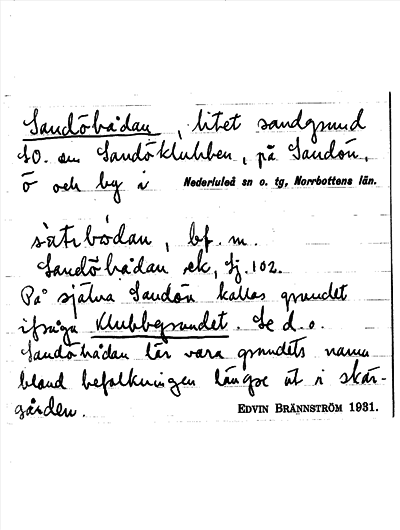 Sandöbådan, litet sandgrund
SO. om Sandöklubben, på Sandön,
ö och by i Nederluleå sn o. tg, Norrbottens län.
bf. m.
Sandöbådan ek, Sj. 102.
På själva Sandön kallas grundet
ifråga Klubbgrundet. Se d. o.
Sandöbådan lär vara grundets namn
bland befolkningen längre ut i skär-
gården. EDVIN BRÄNNSTRÖM 1931.